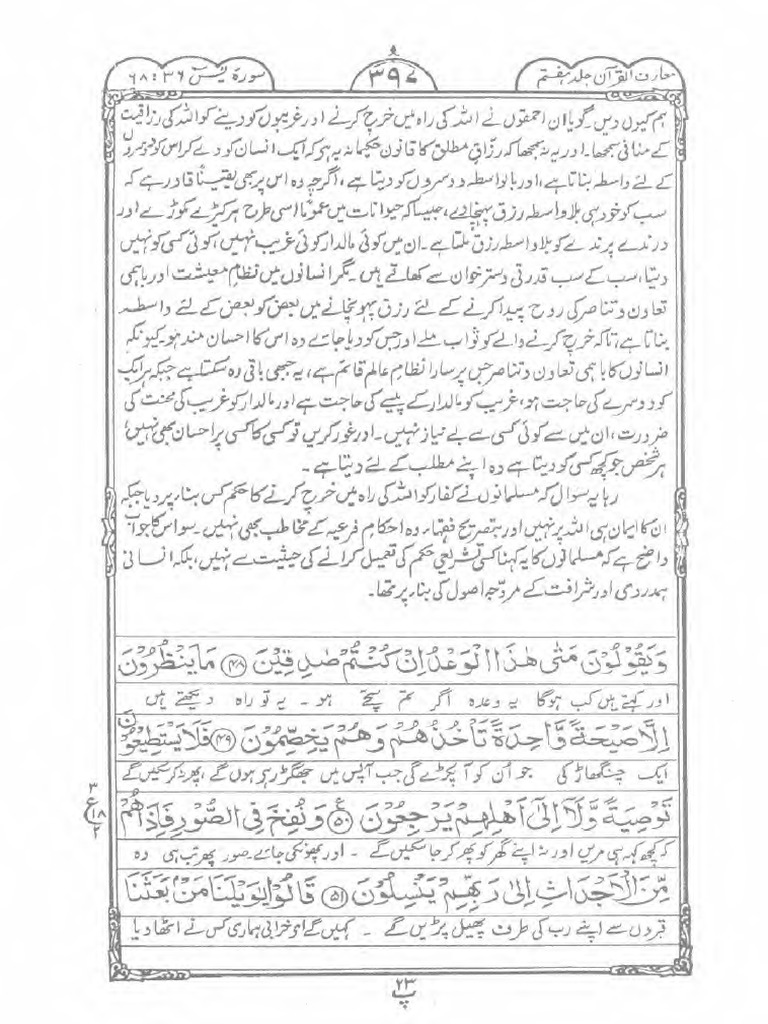 معارف القرآن جلد ہفتم
۳۹۷
سورۃ یٰسٓ ۳۶ : ۶۸
ہم کیوں دیں۔ گویا ان احمقوں نے اللہ کی راہ میں خرچ کرنے اور غریبوں کو دینے کو اللہ کی رزاقیت
کے منافی سمجھا۔ اور یہ نہ سمجھا کہ رزّاقِ مطلق کا قانون حکیمانہ یہ ہے کہ ایک انسان کو دے کر اس کو دوسروں
کے لئے واسطہ بناتا ہے، اور بالواسطہ دوسروں کو دیتا ہے، اگرچہ وہ اس پر بھی یقیناً قادر ہے کہ
سب کو خود ہی بلا واسطہ رزق پہنچا دے، جیسا کہ حیوانات میں عموماً اسی طرح ہر کیڑے مکوڑے اور
درندے پرندے کو بلا واسطہ رزق ملتا ہے۔ ان میں کوئی مالدار کوئی غریب نہیں، کوئی کسی کو نہیں
دیتا، سب کے سب قدرتی دسترخوان سے کھاتے ہیں۔ مگر انسانوں میں نظامِ معیشت اور باہمی
تعاون و تناصر کی روح پیدا کرنے کے لئے رزق پہونچانے میں بعض کو بعض کے لئے واسطہ
بناتا ہے، تاکہ خرچ کرنے والے کو ثواب ملے اور جس کو دیا جائے وہ اس کا احسان مند ہو۔ کیونکہ
انسانوں کا باہمی تعاون و تناصر جس پر سارا نظامِ عالم قائم ہے، یہ جبھی باقی رہ سکتا ہے جبکہ ہر ایک
کو دوسرے کی حاجت ہو، غریب کو مالدار کے پیسے کی حاجت ہے اور مالدار کو غریب کی محنت کی
ضرورت، ان میں سے کوئی کسی سے بے نیاز نہیں۔ اور غور کریں تو کسی کا کسی پر احسان بھی نہیں،
ہر شخص جو کچھ کسی کو دیتا ہے وہ اپنے مطلب کے لئے دیتا ہے۔
رہا یہ سوال کہ مسلمانوں نے کفار کو اللہ کی راہ میں خرچ کرنے کا حکم کس بناء پر دیا جبکہ
ان کا ایمان ہی اللہ پر نہیں اور بتصریح فقہاء وہ احکامِ فرعیہ کے مخاطب بھی نہیں۔ سو اس کا جواب
واضح ہے کہ مسلمانوں کا یہ کہنا کسی تشریعی حکم کی تعمیل کرانے کی حیثیت سے نہیں، بلکہ انسانی
ہمدردی اور شرافت کے مروّجہ اصول کی بناء پر تھا۔
وَيَقُوْلُوْنَ مَتٰى هٰذَا الْوَعْدُ اِنْ كُنْتُمْ صٰدِقِيْنَ ﴿۴۸﴾ مَا يَنْظُرُوْنَ
اور کہتے ہیں کب ہوگا یہ وعدہ اگر تم سچے ہو۔ یہ تو راہ دیکھتے ہیں
اِلَّا صَيْحَةً وَّاحِدَةً تَاْخُذُهُمْ وَهُمْ يَخِصِّمُوْنَ ﴿۴۹﴾ فَلَا يَسْتَطِيْعُوْنَ
ایک چنگھاڑ کی جو اُن کو آ پکڑے گی جب آپس میں جھگڑ رہے ہوں گے، پھر نہ کر سکیں گے
تَوْصِيَةً وَّلَآ اِلٰٓى اَهْلِهِمْ يَرْجِعُوْنَ ﴿۵۰﴾ وَنُفِخَ فِى الصُّوْرِ فَاِذَا هُمْ
کہ کچھ کہہ ہی مریں اور نہ اپنے گھر کو پھر کر جا سکیں گے۔ اور پھونکی جائے صور پھر تب ہی وہ
مِّنَ الْاَجْدَاثِ اِلٰى رَبِّهِمْ يَنْسِلُوْنَ ﴿۵۱﴾ قَالُوْا يٰوَيْلَنَا مَنْۢ بَعَثَنَا
قبروں سے اپنے رب کی طرف پھیل پڑیں گے۔ کہیں گے اے خرابی ہماری کس نے اٹھا دیا
۳
ع ۱۸
۲
۲۳
پ